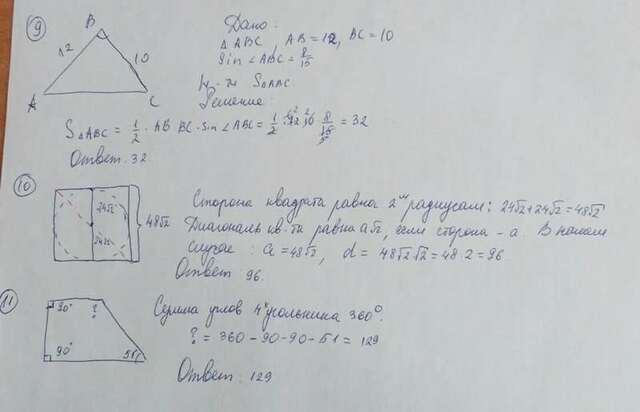 9
B
12
10
A
C
Дано:
△ABC AB=12, BC=10
Sin ∠ABC = 8/15
S△ABC
Решение:
S△ABC = 1/2 · AB · BC · sin ∠ABC = 1/2 · 12 · 10 · 8/15 = 32
Ответ: 32
10
24√2
24√2
48√2
Сторона квадрата равна 2ум радиусам: 24√2+24√2=48√2
Диагональ кв-та равна a√2, если сторона - a. В нашем
случае: a=48√2, d= 48√2·√2=48·2=96.
Ответ: 96.
11
90°
?
90°
51°
Сумма углов 4хугольника 360°.
? = 360-90-90-51 = 129
Ответ: 129